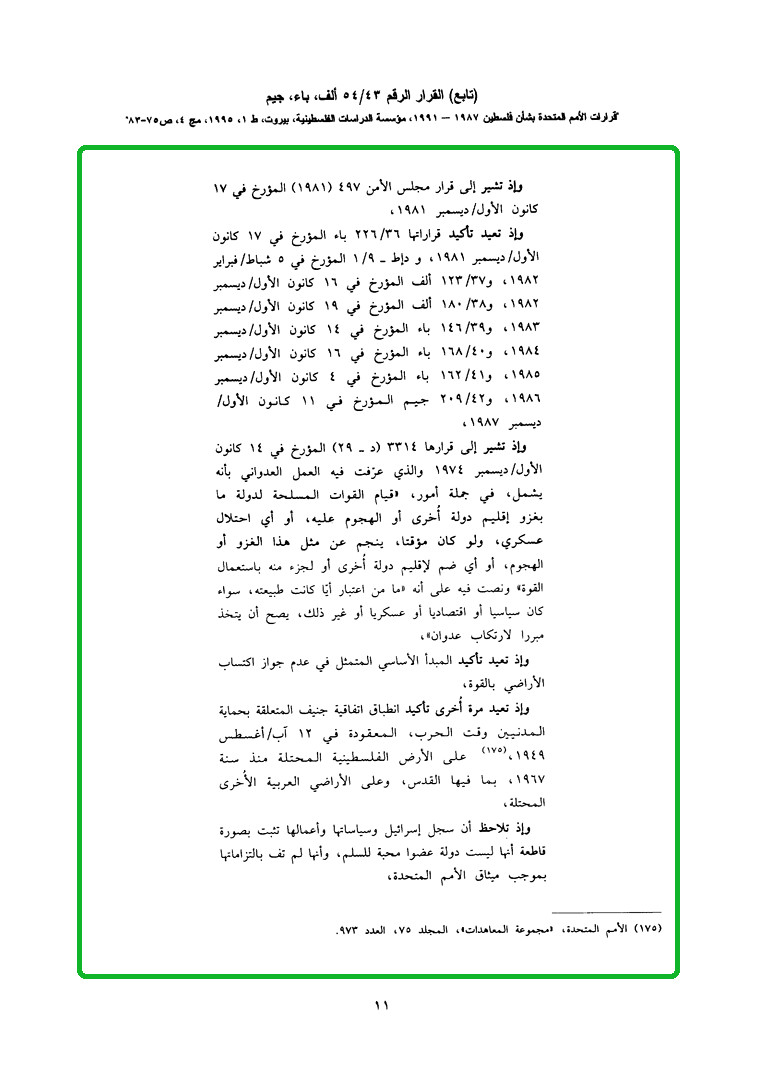 (تابع) القرار الرقم ٥٤/٤٣ ألف، باء، جيم
"قرارات الأمم المتحدة بشأن فلسطين ١٩٨٧ – ١٩٩١، مؤسسة الدراسات الفلسطينية، بيروت، ط ١، ١٩٩٥، مج ٤، ص٧٥-٨٣"
وإذ تشير إلى قرار مجلس الأمن ٤٩٧ (١٩٨١) المؤرخ في ١٧
كانون الأول/ديسمبر ١٩٨١،
وإذ تعيد تأكيد قراراتها ٢٢٦/٣٦ باء المؤرخ في ١٧ كانون
الأول/ديسمبر ١٩٨١، و دإط ـ ١/٩ المؤرخ في ٥ شباط/فبراير
١٩٨٢، و١٢٣/٣٧ ألف المؤرخ في ١٦ كانون الأول/ديسمبر
١٩٨٢، و١٨٠/٣٨ ألف المؤرخ في ١٩ كانون الأول/ديسمبر
١٩٨٣، و١٤٦/٣٩ باء المؤرخ في ١٤ كانون الأول/ديسمبر
١٩٨٤، و١٦٨/٤٠ باء المؤرخ في ١٦ كانون الأول/ديسمبر
١٩٨٥، و١٦٢/٤١ باء المؤرخ في ٤ كانون الأول/ديسمبر
١٩٨٦، و٢٠٩/٤٢ جيم المؤرخ في ١١ كانون الأول/
ديسمبر ١٩٨٧،
وإذ تشير إلى قرارها ٣٣١٤ (د ـ ٢٩) المؤرخ في ١٤ كانون
الأول/ديسمبر ١٩٧٤ والذي عرّفت فيه العمل العدواني بأنه
يشمل، في جملة أمور، «قيام القوات المسلحة لدولة ما
بغزو إقليم دولة أُخرى أو الهجوم عليه، أو أي احتلال
عسكري، ولو كان مؤقتا، ينجم عن مثل هذا الغزو أو
الهجوم، أو أي ضم لإقليم دولة أُخرى أو لجزء منه باستعمال
القوة» ونصت فيه على أنه «ما من اعتبار أيّا كانت طبيعته، سواء
كان سياسيا أو اقتصاديا أو عسكريا أو غير ذلك، يصح أن يتخذ
مبررا لارتكاب عدوان»،
وإذ تعيد تأكيد المبدأ الأساسي المتمثل في عدم جواز اكتساب
الأراضي بالقوة،
وإذ تعيد مرة أُخرى تأكيد انطباق اتفاقية جنيف المتعلقة بحماية
المدنيين وقت الحرب، المعقودة في ١٢ آب/أغسطس
١٩٤٩،(١٧٥) على الأرض الفلسطينية المحتلة منذ سنة
١٩٦٧، بما فيها القدس، وعلى الأراضي العربية الأُخرى
المحتلة،
وإذ تلاحظ أن سجل إسرائيل وسياساتها وأعمالها تثبت بصورة
قاطعة أنها ليست دولة عضوا محبة للسلم، وأنها لم تف بالتزاماتها
بموجب ميثاق الأمم المتحدة،
(١٧٥) الأمم المتحدة، «مجموعة المعاهدات»، المجلد ٧٥، العدد ٩٧٣.
١١